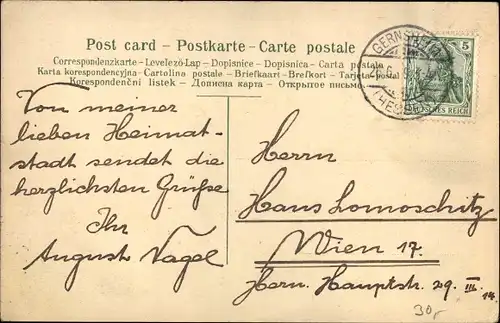 Post card - Postkarte - Carte postale
Correspondenzkarte - Levelező-Lap - Dopisnice - Dopisnica - Carta postale
Karta korespondencyjna - Cartolina postale - Briefkaart - Brefkort - Tarjeta postal
Korespondenční lístek - Дописна карта - Открытое письмо
5
DEUTSCHES REICH
Von meiner
lieben Heimat-
stadt sendet die
herzlichsten Grüße
Ihr
August Vagel
Herrn
Hans Lomoschitz
Wien 17.
Hern. Hauptstr. 29. III.
14.
30,-